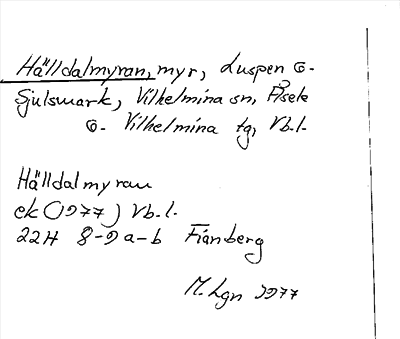 Hälldalmyran, myr, Luspen o.
Sjulsmark, Vilhelmina sn, Åsele
o. Vilhelmina tg, Vb.l.
Hälldalmyran
ek (1977) Vb.l.
22H 8-9 a-b Fianberg
M. Lgn 1977